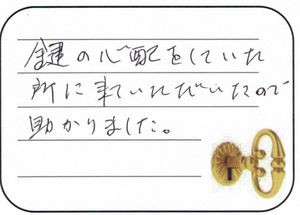 鍵の心配をしていた
所に来ていただいたので
助かりました。